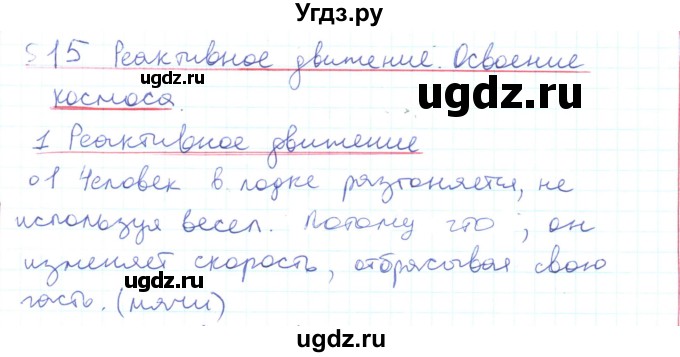 Угдз.ру
§15 Реактивное движение. Освоение
ugdz.ru
ugdz.ru
космоса.
1 Реактивное движение
о1 Человек в лодке разгоняется, не
ugdz.ru
используя весел. Потому что, он
изменяет скорость, отбрасывая свою
часть. (мячи)
ugdz.ru
ugdz.ru